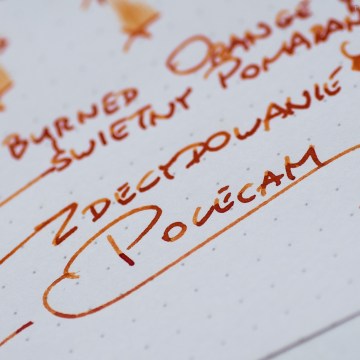 BYRNED ORANGE
ŚWIETNY POMARAŃ
ZDECYDOWANIE
POLECAM